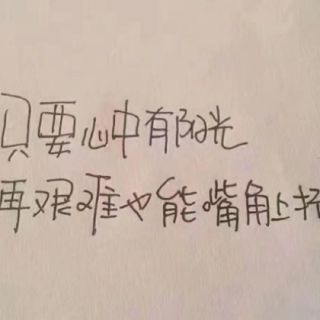 只要心中有阳光
再艰难也能嘴角上扬